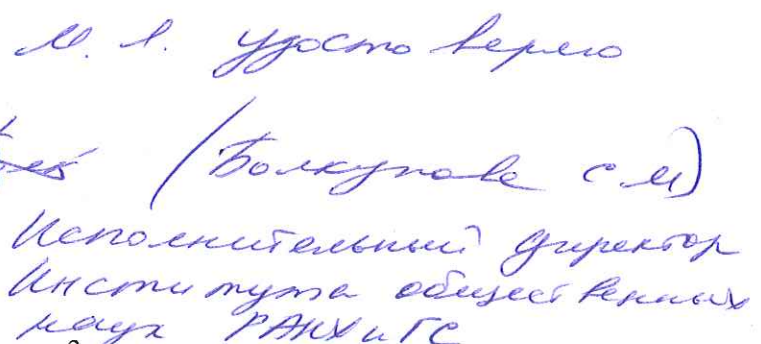 М. А. удостоверяю
(Болкунова С М)
Исполнительный директор
Института общественных
наук РАНХиГС